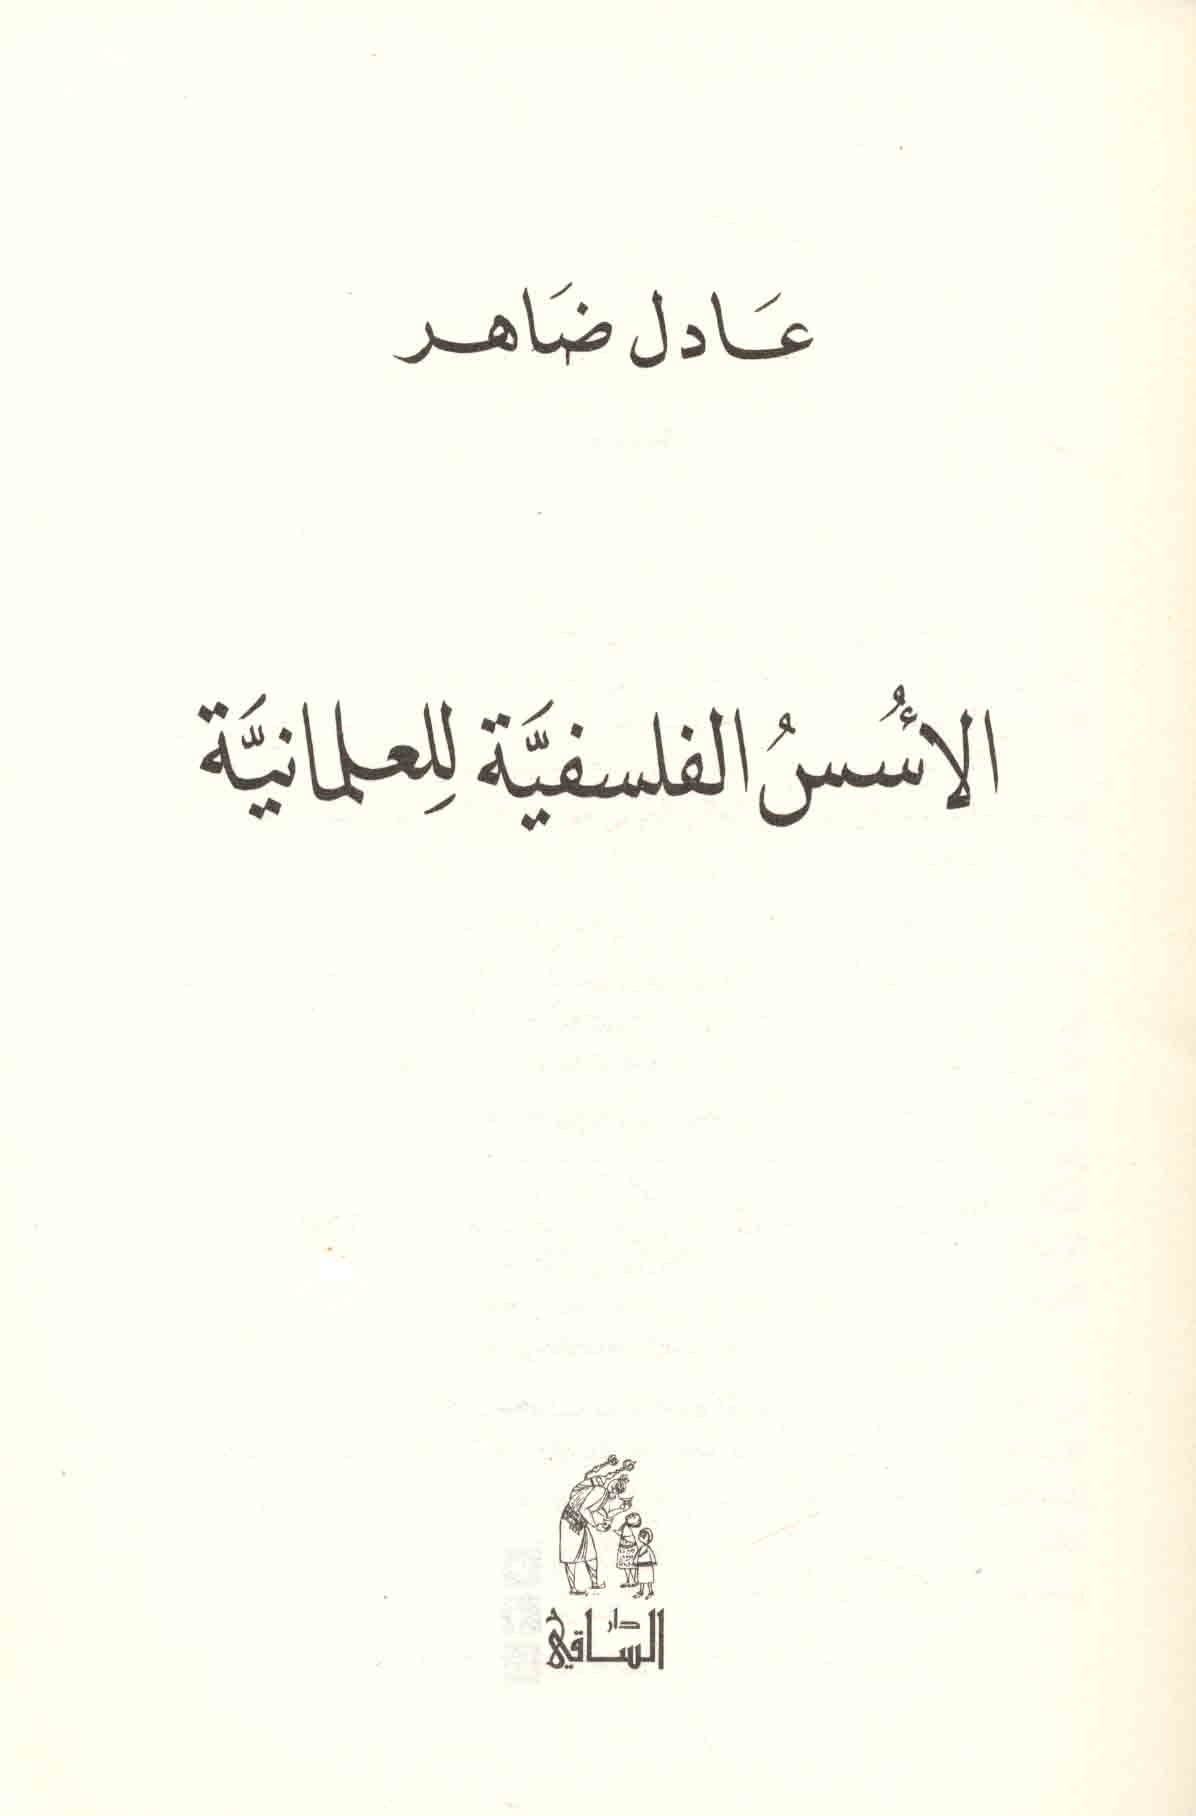 عَادل ضَاهر
الأسُسُ الفلسفيَّة لِلعلمانيَّة
دار
السَّاقي